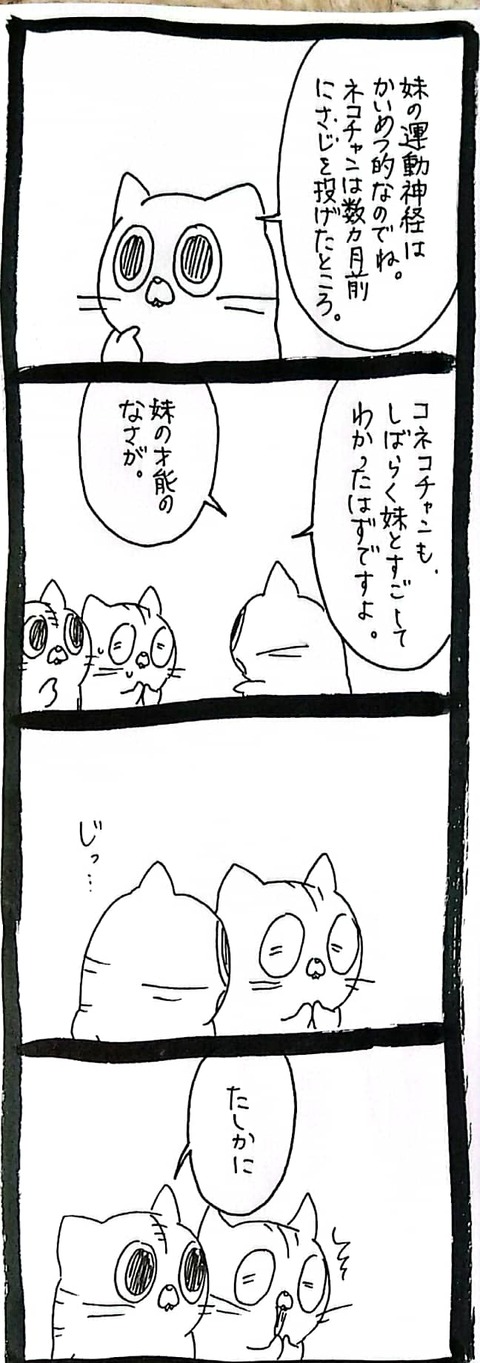 妹の運動神経は
かいめつ的なのでね。
ネコチャンは数カ月前
にさじを投げたところ。
コネコチャンも、
しばらく妹とすごして
わかったはずですよ。
妹の才能の
なさが。
じっ…
たしかに